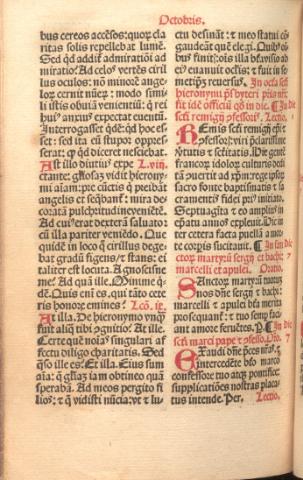 Octobris.
bus cereos accẽsos: quorũ cla
ritas solis repellebat lumẽ.
Sed qd̃ addit admirationi ad
miratiõe. Ad celos vertẽs ciril
lus oculos: nõ minorẽ ange
loꝝ cernit nũeꝝ: modo simi
li istis obuiã venientiũ: q̃ rei
huiꝰ anxius expectat euentũ.
Interrogasset qd̃ẽ: qd̃ hoc es
set: sed ita cũ stupor oppres
serat: qd̃ diceret nesciebat.
At illo diutius
ctante: gliosaʒ vidit hierony
mi aĩam: pre cũctis q̃ preibãt
angelis et seq̃banť: mira de
coratã pulchritudĩe veniẽtẽ.
Ad cui dexterã saluator:
cũ illa pariter veniẽdo. Que
quidẽ in loco q̃ cirillus dege
bat gradũ figens: stans: ei
taliter est locuta. Agnoscisne
me. Ad quã ille. Minime q̃
dẽ. Quis eni es, qui tãto cete
ris honore emines? Lcõ. ix.
At illa. De hieronymo vnq̃
sint aliq̃ tibi cognitio? At ille.
Certe quẽ noĩas singulari af
fectu diligo charitatis. Sed
q̃so ille es? Et illa. Eius sum
aĩa: q̃ gl̃iaʒ iam obtineo quã
speraba. Ad meos pergito fi
lios: & q̃ vidisti nũcia: vt lu
ctu desinãt: & meo statui cõ
gaudeãt quẽ elegi. Quibꝰ oĩ
bus finit: ois illa bfa visio ab
eiꝰ euanuit oclis: & fuit in se
metipsũ reuersꝰ. In octa sci
hieronymi
fit idẽ officiũ qd̃ in die. In die
scti remigij pfessoris. Lectio.
Remis scti remigij epi &
pfessor: viri pclarissime
virtutis & sctitatis. De gẽte
francoꝝ idoloꝝ culturis dedi
tã puertit ad xp̃m: rege ipsoꝝ
sacro fonte baptismatis & sa
cramentis fidei priꝰ initiato.
Septuagita & eo amplius in
epatu annos explenit. Dic in
ter cetera facta puellã a mor
te corpis suscitauit. In die
ctoꝝ martyrũ sergij et bachi:
marcelli et apulei. Oratio.
Sanctoꝝ martyrũ tuorũ
nos dñe sergij & bachi:
marcelli & apulei bta merita
prosequant: & tuo semp faci
ant amore feruẽtes. P. In die
scti marci pape & pfesso. Oro.
Exaudi dñe pces nr̃as: &
intercedẽte bto marco
confessore tuo atqʒ pontifice:
supplicatiões nostras placa
tus intende. Per. Lectio.